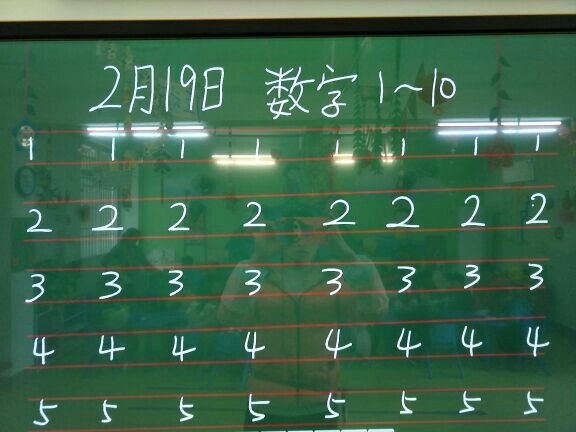 2月19日 数字1~10
1 1 1 1 1 1 1 1
2 2 2 2 2 2 2 2
3 3 3 3 3 3 3 3
4 4 4 4 4 4 4 4
5 5 5 5 5 5 5 5